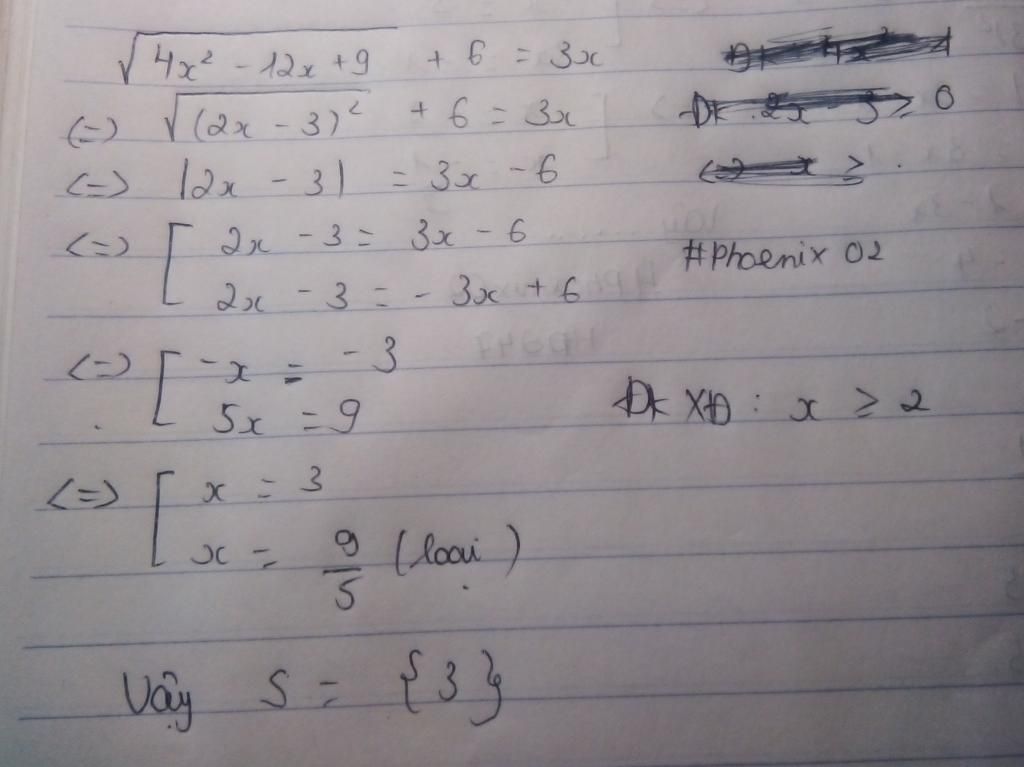 √(4x² - 12x + 9) + 6 = 3x
(=) √((2x - 3)²) + 6 = 3x
Đk : 2x - 3 ≥ 0
<=> |2x - 3| = 3x - 6
<=> x ≥ .
<=> [ 2x - 3 = 3x - 6
2x - 3 = - 3x + 6
#Phoenix 02
<=> [ -x = -3
5x = 9
ĐkXĐ : x ≥ 2
<=> [ x = 3
x = 9/5 (loại)
Vậy S = {3}